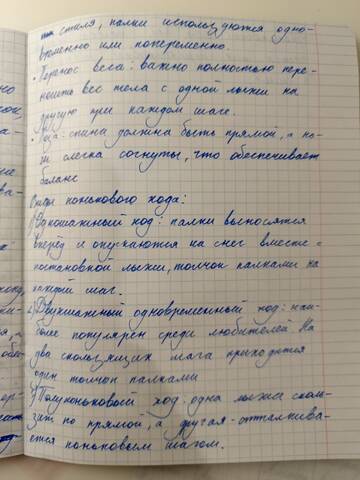 стиля, палки используются одно-
временно или попеременно.
• Перенос веса: важно полностью пере-
носить вес тела с одной лыжи на
другую при каждом шаге.
• Поза: спина должна быть прямой, а но-
ги слегка согнуты, что обеспечивает
баланс
конькового хода:
1) Одношажный ход: палки выносятся
вперед и опускаются на снег вместе с
постановкой лыжи, толчок палками на
каждый шаг.
2) Двухшажный одновременный ход: наи-
более популярен среди любителей На
два скользящих шага приходится
один толчок палками
Полуконьковый ход: одна лыжа сколь-
зит по прямой, а другая - отталкива-
ется коньковым шагом.